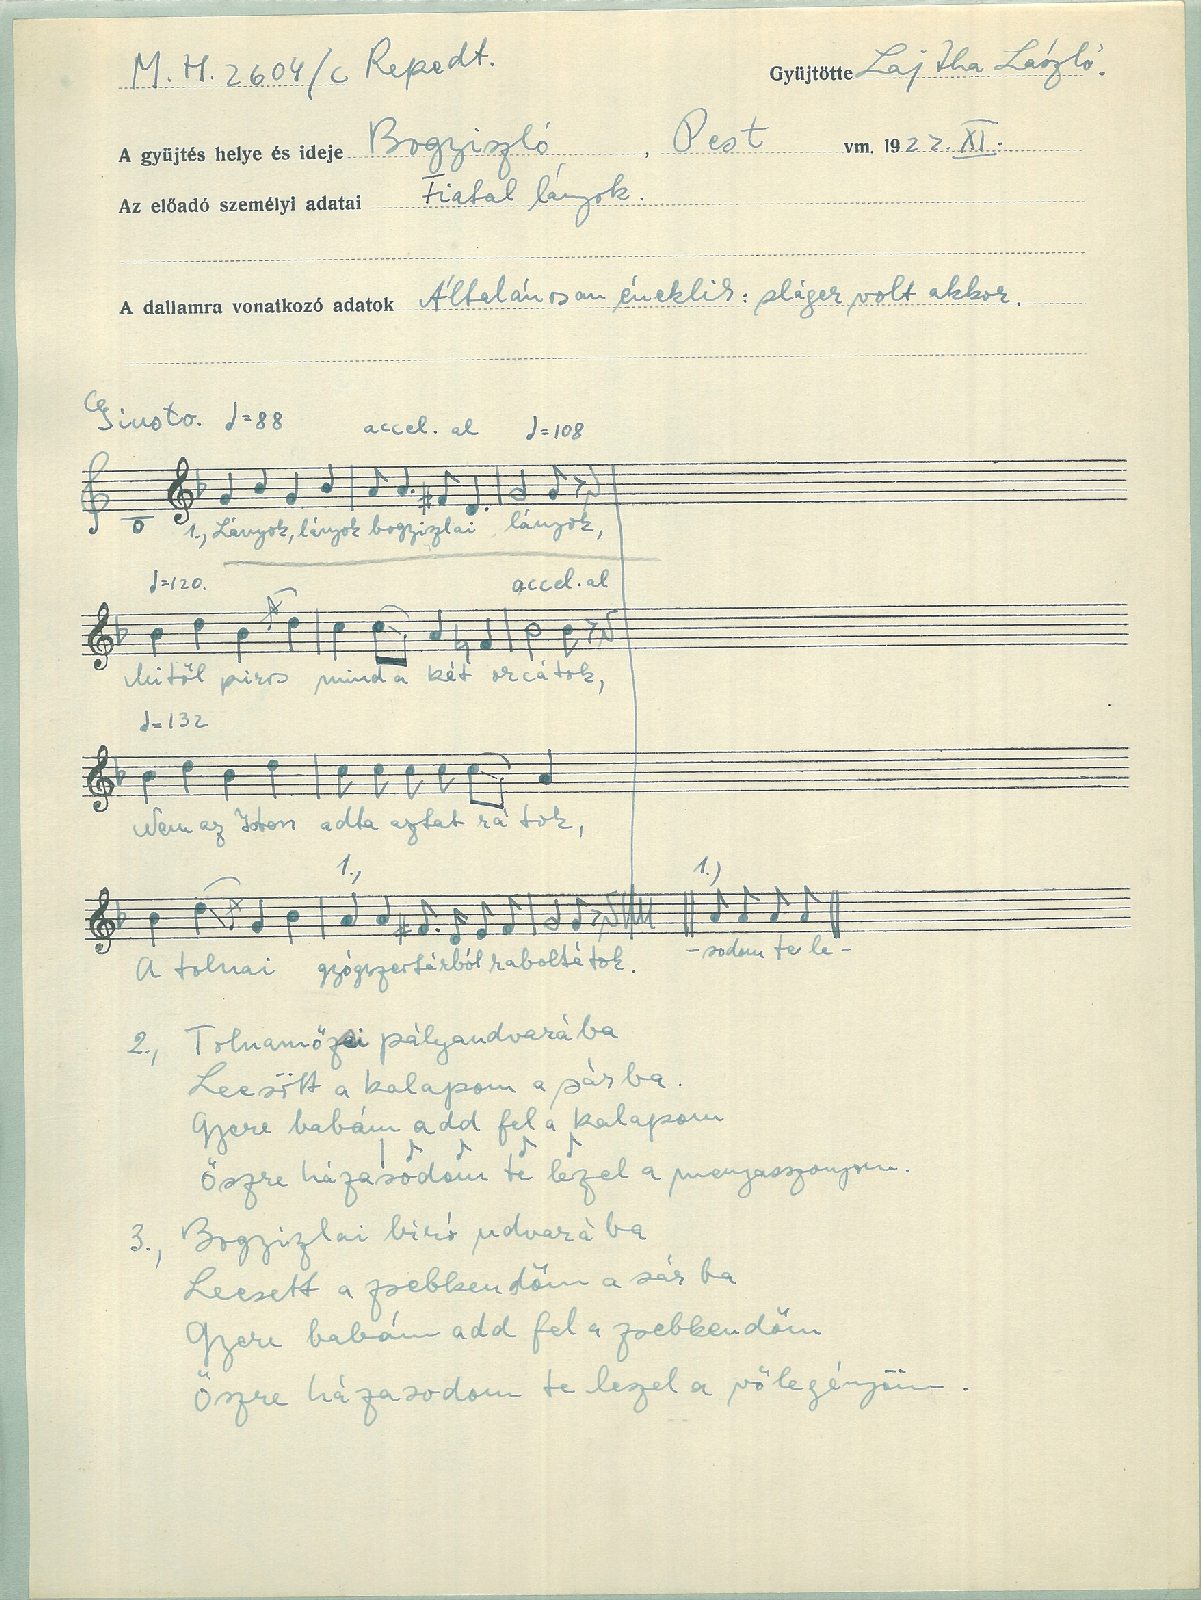 M.H. 2604/c Repedt.
Gyüjtötte Lajtha László.
A gyüjtés helye és ideje Bogyiszló, Pest vm. 1922. XI.
Az előadó személyi adatai Fiatal lányok.
A dallamra vonatkozó adatok Általánosan éneklik: sláger volt akkor.
Giusto. ♩=88 accel. al ♩=108
1., Lányok, lányok bogyizlai lányok,
♩=120. accel. al
Mitől piros mind a két orcátok,
♩=132
Nem az Isten adta aztat rátok,
1., 1.)
A tolnai gyógyszertárból raboltátok. -sodom te le-
2., Tolnamőzsi pályaudvarába
Leesött a kalapom a sárba.
Gyere babám add fel a kalapom
Őszre házasodom te lezel a menyasszonyom.
3., Bogyizlai biró udvarába
Leesett a zsebkendőm a sárba
Gyere babám add fel a zsebkendőm
Őszre házasodom te lezel a vőlegényöm.